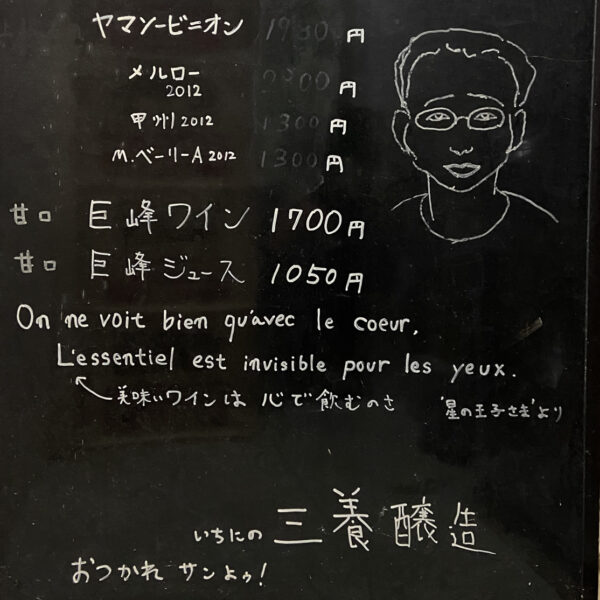 ヤマソービニオン 円
メルロー
2012
円
甲州 2012 1300 円
M.ベーリーA 2012 1300 円
甘口 巨峰ワイン 1700円
甘口 巨峰ジュース 1050円
On ne voit bien qu'avec le coeur.
L'essentiel est invisible pour les yeux.
美味いワインは 心で飲むのさ '星の王子さま'より
いちにの 三養醸造
おつかれ サンよゥ!